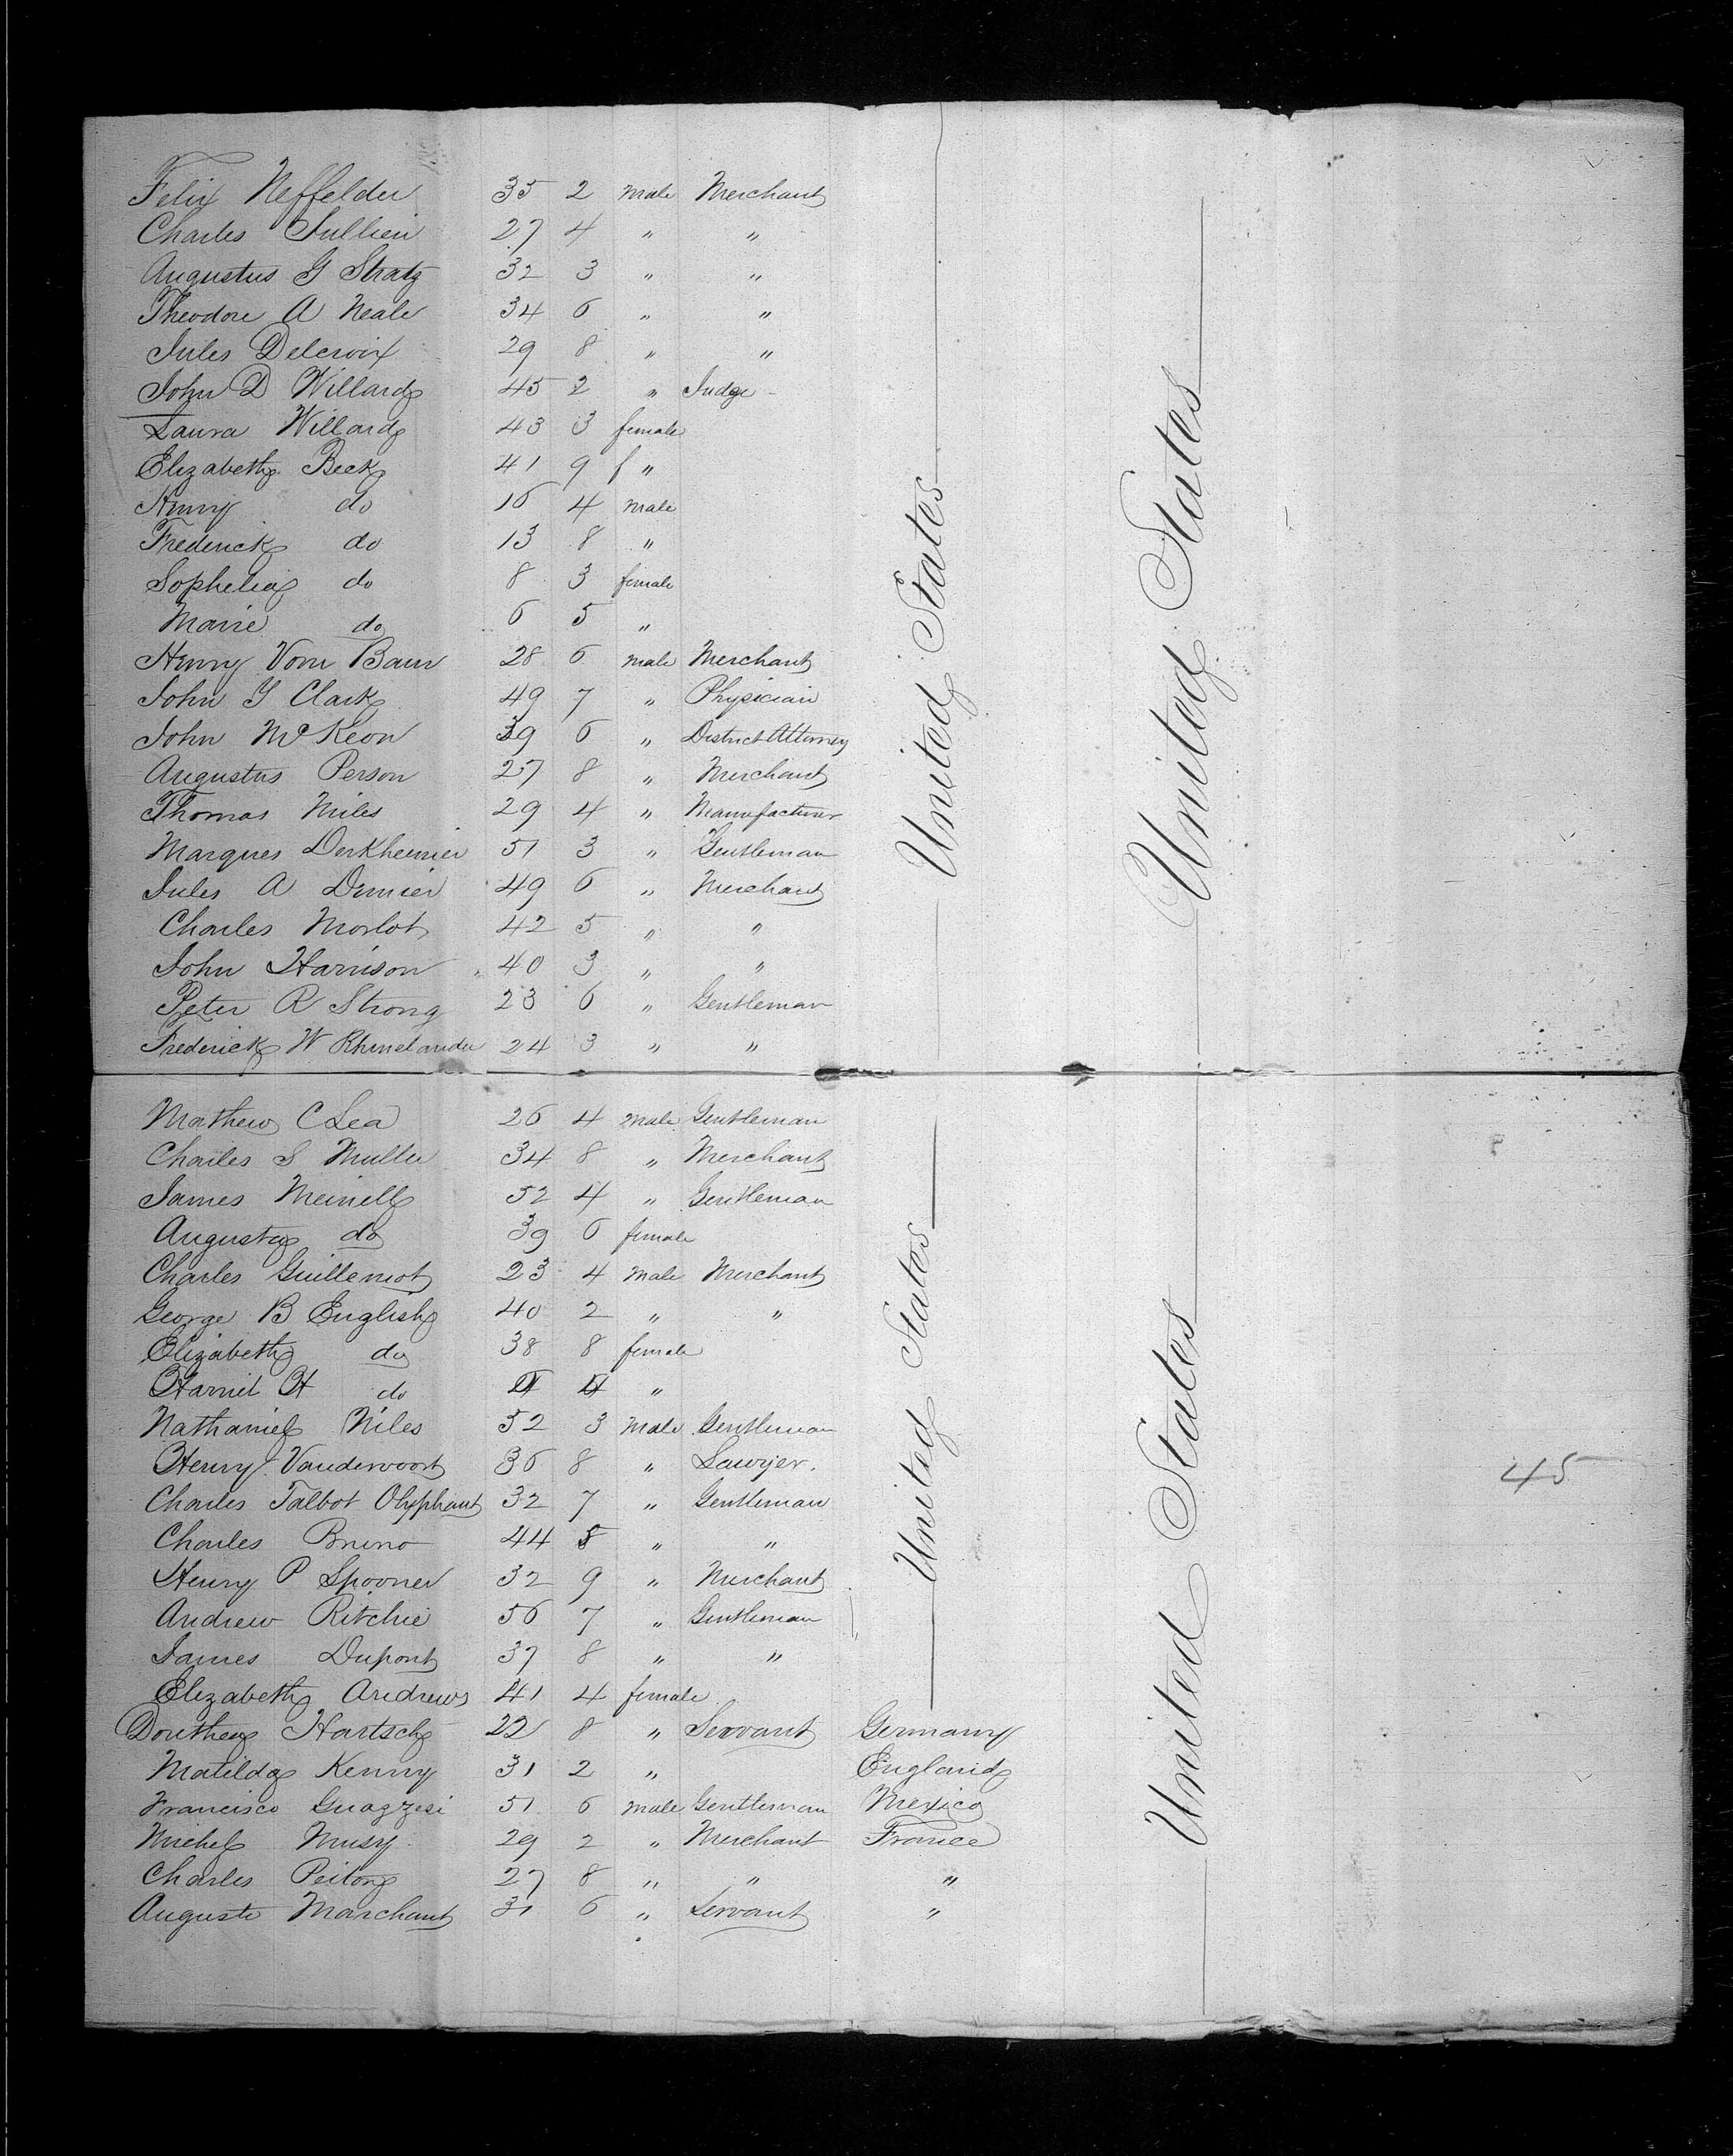 Felix Neffelder 35 2 male Merchant
Charles Jullien 27 4 " "
Augustus G Stratz 32 3 " "
Theodore A Neale 34 6 " "
Jules Delcroix 29 8 " "
John D Willard 45 2 " Judge
Laura Willard 43 3 female
Elizabeth Beck 41 9 f "
Henry do 16 4 male
Frederick do 13 8 "
Sophelia do 8 3 female
Marie do 6 5 "
Henry Vom Baur 28 6 male Merchant
John G Clark 49 7 " Physician
John McKeon 39 6 " District Attorney
Augustus Person 27 8 " Merchant
Thomas Niles 29 4 " Manufacturer
Marques Derkheimier 51 3 " Gentleman
Jules A Dimier 49 6 " Merchant
Charles Morlot 42 5 " "
John Harrison 40 3 " "
Peter R Strong 23 6 " Gentleman
Frederick W Rhinelander 24 3 " "
United States
United States
Mathew C Lea 26 4 male Gentleman
Charles S Muller 34 8 " Merchant
James Meinell 52 4 " Gentleman
Augusta do 39 6 female
Charles Guillemot 23 4 male Merchant
George B English 40 2 " "
Elizabeth do 38 8 female
Harriet H do 4 "
Nathaniel Niles 52 3 male Gentleman
Henry Vandervoort 36 8 " Lawyer.
Charles Talbot Olyphant 32 7 " Gentleman
Charles Bruno 44 5 " "
Henry P Spooner 32 9 " Merchant
Andrew Ritchie 56 7 " Gentleman
James Dupont 37 8 " "
Elizabeth Andrews 41 4 female
Dorothea Hartsch 22 8 " Servant Germany
Matilda Kenny 31 2 " England
Francisco Guazzesi 51 6 male Gentleman Mexico
Michel Musy 29 2 " Merchant France
Charles Peitong 27 8 " " "
Auguste Marchant 31 6 " Servant "
United States
United States
45